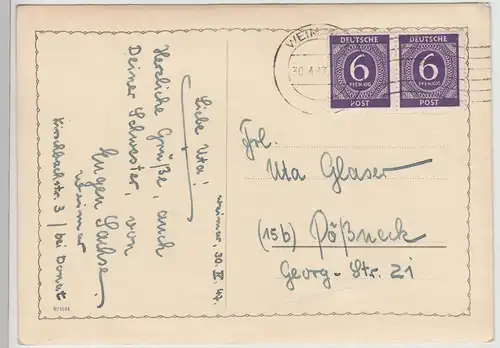 Weimar, 30. IV. 47.
Liebe Uta!
Herzliche Grüße, auch
Deiner Schwester, von
Eugen Sachse.
Weimar
Kirschbachstr. 3 / bei Donat
WEIM
30.4.47
DEUTSCHE
6
PFENNIG
POST
DEUTSCHE
6
PFENNIG
POST
Frl.
Uta Glaser
(15b) Pößneck
Georg-Str. 21